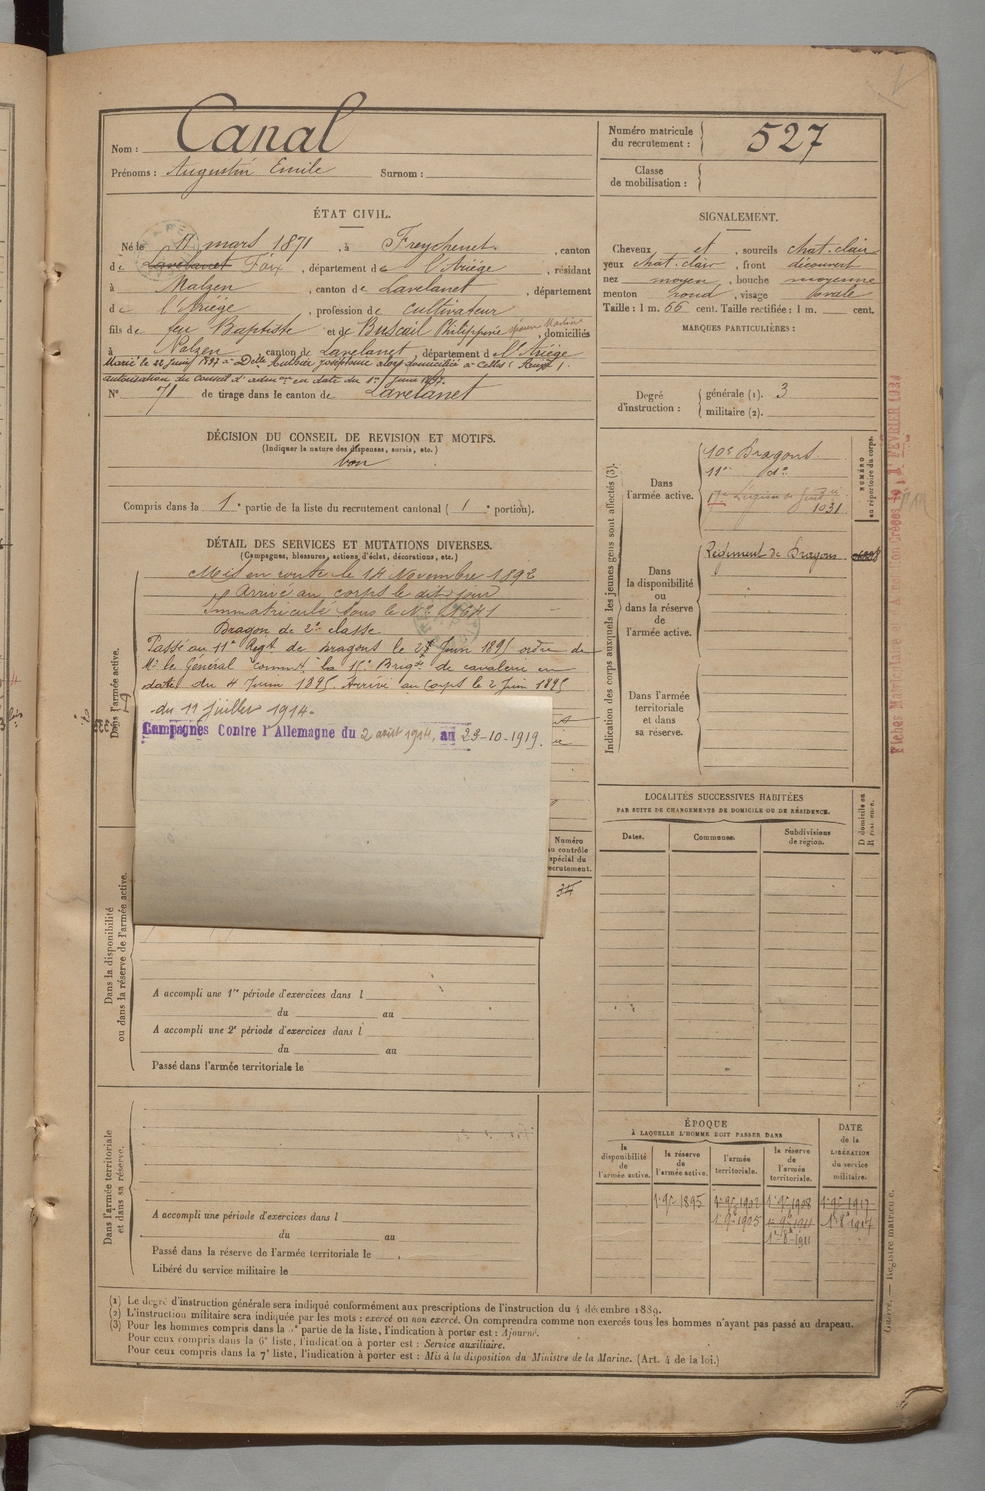 Nom : Canal
Prénoms : Augustin Emile Surnom :
Numéro matricule du recrutement : 527
Classe de mobilisation :
ÉTAT CIVIL.
Né le 11 mars 1871, à Freychenet, canton
de Lavelanet Foix, département de l'Ariége, résidant
à Nalzen, canton de Lavelanet, département
de l'Ariége, profession de cultivateur
fils de feu Baptiste et de Buscail Philippine, domiciliés
à Nalzen, canton de Lavelanet, département de l'Ariége
Marié le 22 Juin 1897 à Delle Joséphine alors domiciliée à Celles
autorisation du Conseil d'admon en date du 1er Juin 1897.
N° 71 de tirage dans le canton de Lavelanet
SIGNALEMENT.
Cheveux et, sourcils chat. clair
yeux chat. clair, front découvert
nez moyen, bouche moyenne
menton rond, visage ovale
Taille : 1 m. 66 cent. Taille rectifiée : 1 m. cent.
MARQUES PARTICULIÈRES :
Degré d'instruction :
générale (1). 3
militaire (2).
DÉCISION DU CONSEIL DE REVISION ET MOTIFS.
(Indiquer la nature des dispenses, sursis, etc.)
bon
Compris dans la 1e partie de la liste du recrutement cantonal ( 1e portion).
DÉTAIL DES SERVICES ET MUTATIONS DIVERSES.
(Campagnes, blessures, actions d'éclat, décorations, etc.)
Dans l'armée active.
Mis en route le 14 Novembre 1892
Arrivé au corps le dit jour
Immatriculé sous le N°
Dragon de 2e classe
Passé au 11e Regt de dragons le Juin 1895 ordre de
Mr le Général Commt la Brigde de cavalerie en
date du 4 Juin 1895. Arrivé au Corps le 2 Juin 1895
du 11 juillet 1914.
Campagnes Contre l'Allemagne du 2 août 1914, au 23-10-1919.
Indication des corps auxquels les jeunes gens sont affectés (3).
Dans l'armée active.
10e Dragons
11e do
17e Légion de
1031
NUMÉRO au répertoire du corps.
Dans la disponibilité ou dans la réserve de l'armée active.
Régiment de Dragons
Dans l'armée territoriale et dans sa réserve.
Fiches Matricul
FÉVRIER 193
LOCALITÉS SUCCESSIVES HABITÉES
PAR SUITE DE CHANGEMENTS DE DOMICILE OU DE RÉSIDENCE.
Dates.
Communes.
Subdivisions de région.
D domicile ou R résidence.
Numéro
au contrôle
spécial du
recrutement.
Dans la disponibilité ou dans la réserve de l'armée active.
A accompli une 1re période d'exercices dans l
du au
A accompli une 2e période d'exercices dans l
du au
Passé dans l'armée territoriale le
Dans l'armée territoriale et dans sa réserve.
A accompli une période d'exercices dans l
du au
Passé dans la réserve de l'armée territoriale le
Libéré du service militaire le
ÉPOQUE
À LAQUELLE L'HOMME DOIT PASSER DANS
la disponibilité de l'armée active.
la réserve de l'armée active.
l'armée territoriale.
la réserve de l'armée territoriale.
DATE de la LIBÉRATION du service militaire.
1er 9bre 1895
1er 9bre 1905
(1) Le degré d'instruction générale sera indiqué conformément aux prescriptions de l'instruction du 4 décembre 1889.
(2) L'instruction militaire sera indiquée par les mots : exercé ou non exercé. On comprendra comme non exercés tous les hommes n'ayant pas passé au drapeau.
(3) Pour les hommes compris dans la 5e partie de la liste, l'indication à porter est : Ajourné.
Pour ceux compris dans la 6e liste, l'indication à porter est : Service auxiliaire.
Pour ceux compris dans la 7e liste, l'indication à porter est : Mis à la disposition du Ministre de la Marine. (Art. 4 de la loi.)
Registre matricule.